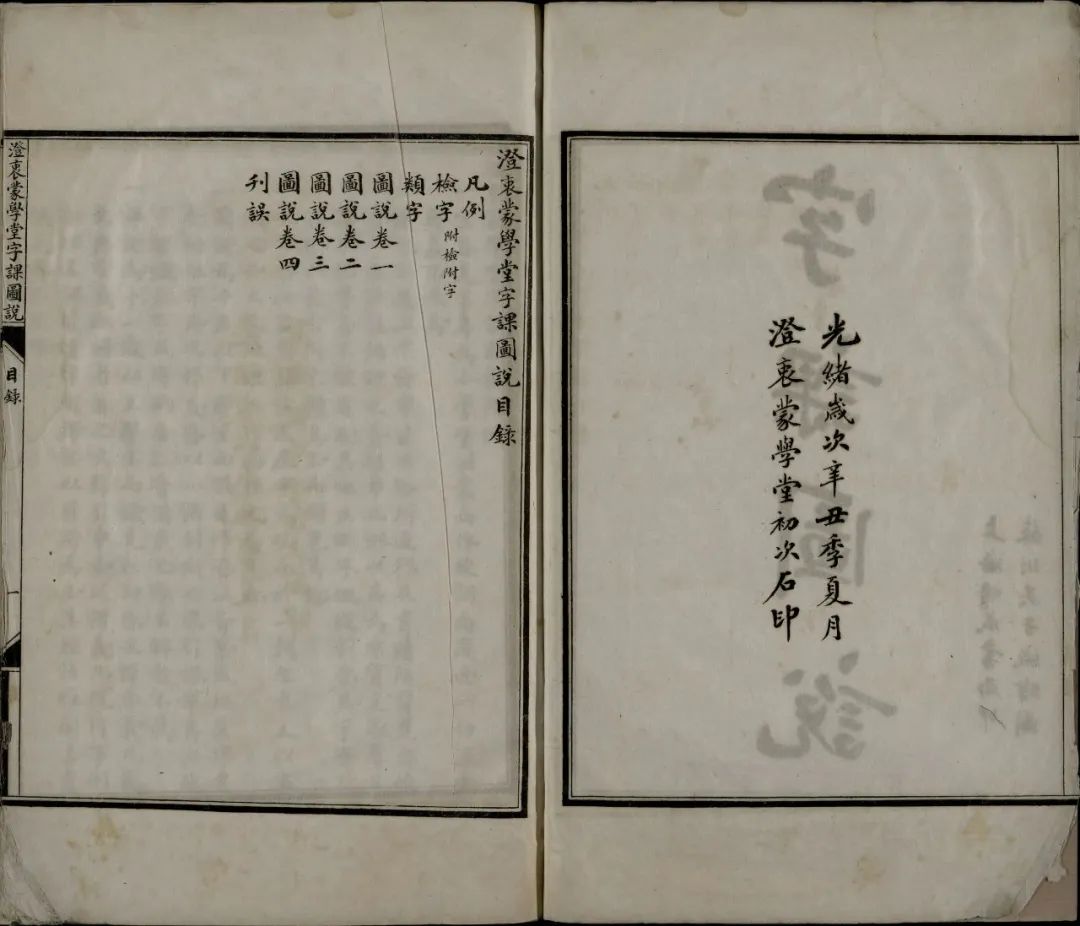 光緒歲次辛丑季夏月
澄衷蒙學堂初次石印
澄衷蒙學堂字課圖說目錄
凡例
檢字 附檢附字
類字
圖說卷一
圖說卷二
圖說卷三
圖說卷四
刊誤
澄衷蒙學堂字課圖說
目錄
一